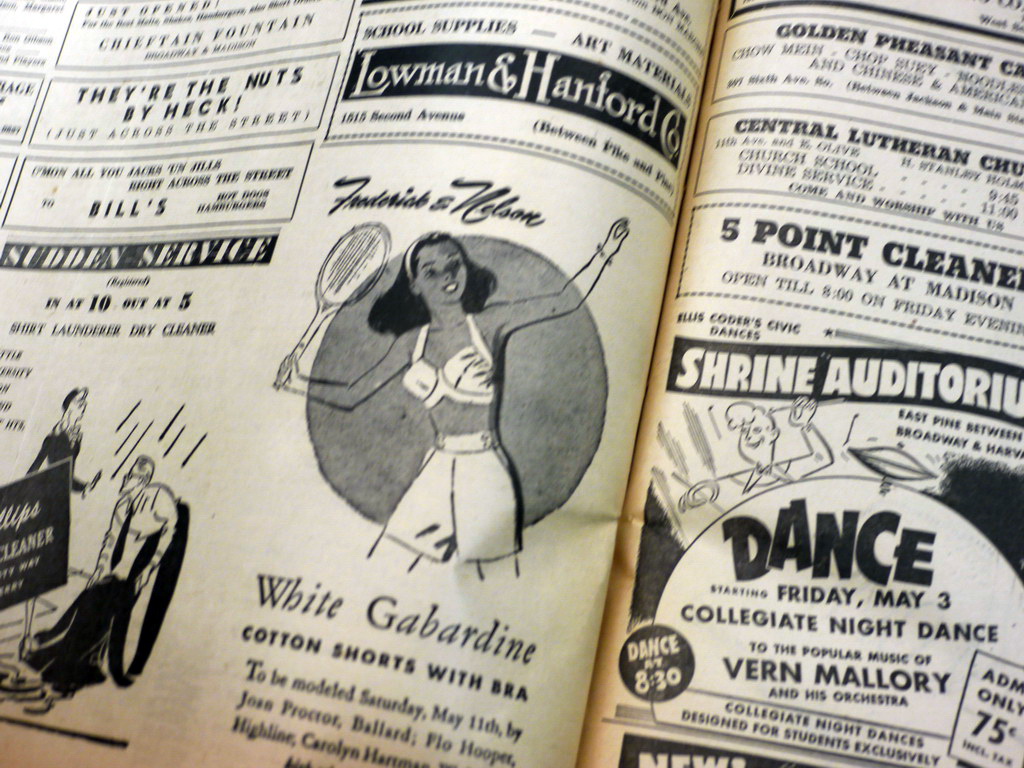 JUST OPENED!
CHIEFTAIN FOUNTAIN
BROADWAY & MADISON
THEY'RE THE NUTS
BY HECK!
(JUST ACROSS THE STREET)
C'MON ALL YOU JACKS 'UN JILLS
RIGHT ACROSS THE STREET
TO BILL'S HOT DOGS
HAMBURGERS
SUDDEN SERVICE
(Required)
IN AT 10 OUT AT 5
SHIRT LAUNDERER DRY CLEANER
CLEANER
SCHOOL SUPPLIES — ART MATERIALS
Lowman & Hanford Co
1515 Second Avenue
(Between Pike and Pine)
Frederick & Nelson
White Gabardine
COTTON SHORTS WITH BRA
To be modeled Saturday, May 11th, by
Joan Proctor, Ballard; Flo Hooper,
Highline, Carolyn Hartman,
GOLDEN PHEASANT CA
CHOW MEIN - CHOP SUEY - NOODLE
AND CHINESE & AMERICA
(Between Jackson & Main
CENTRAL LUTHERAN CHU
11th Ave. and E. OLIVE H. STANLEY HOLM
CHURCH SCHOOL 9:45
DIVINE SERVICE 11:00
COME AND WORSHIP WITH US
5 POINT CLEANE
BROADWAY AT MADISON
OPEN TILL 8:00 ON FRIDAY EVENIN
ELLIS CODER'S CIVIC
DANCES
SHRINE AUDITORIU
EAST PINE BETWEEN
BROADWAY & HARVA
DANCE
STARTING FRIDAY, MAY 3
COLLEGIATE NIGHT DANCE
TO THE POPULAR MUSIC OF
VERN MALLORY
AND HIS ORCHESTRA
DANCE
AT
8:30
COLLEGIATE NIGHT DANCES
DESIGNED FOR STUDENTS EXCLUSIVELY
ADM
ONLY
75¢
INCL. TAX
NEW!